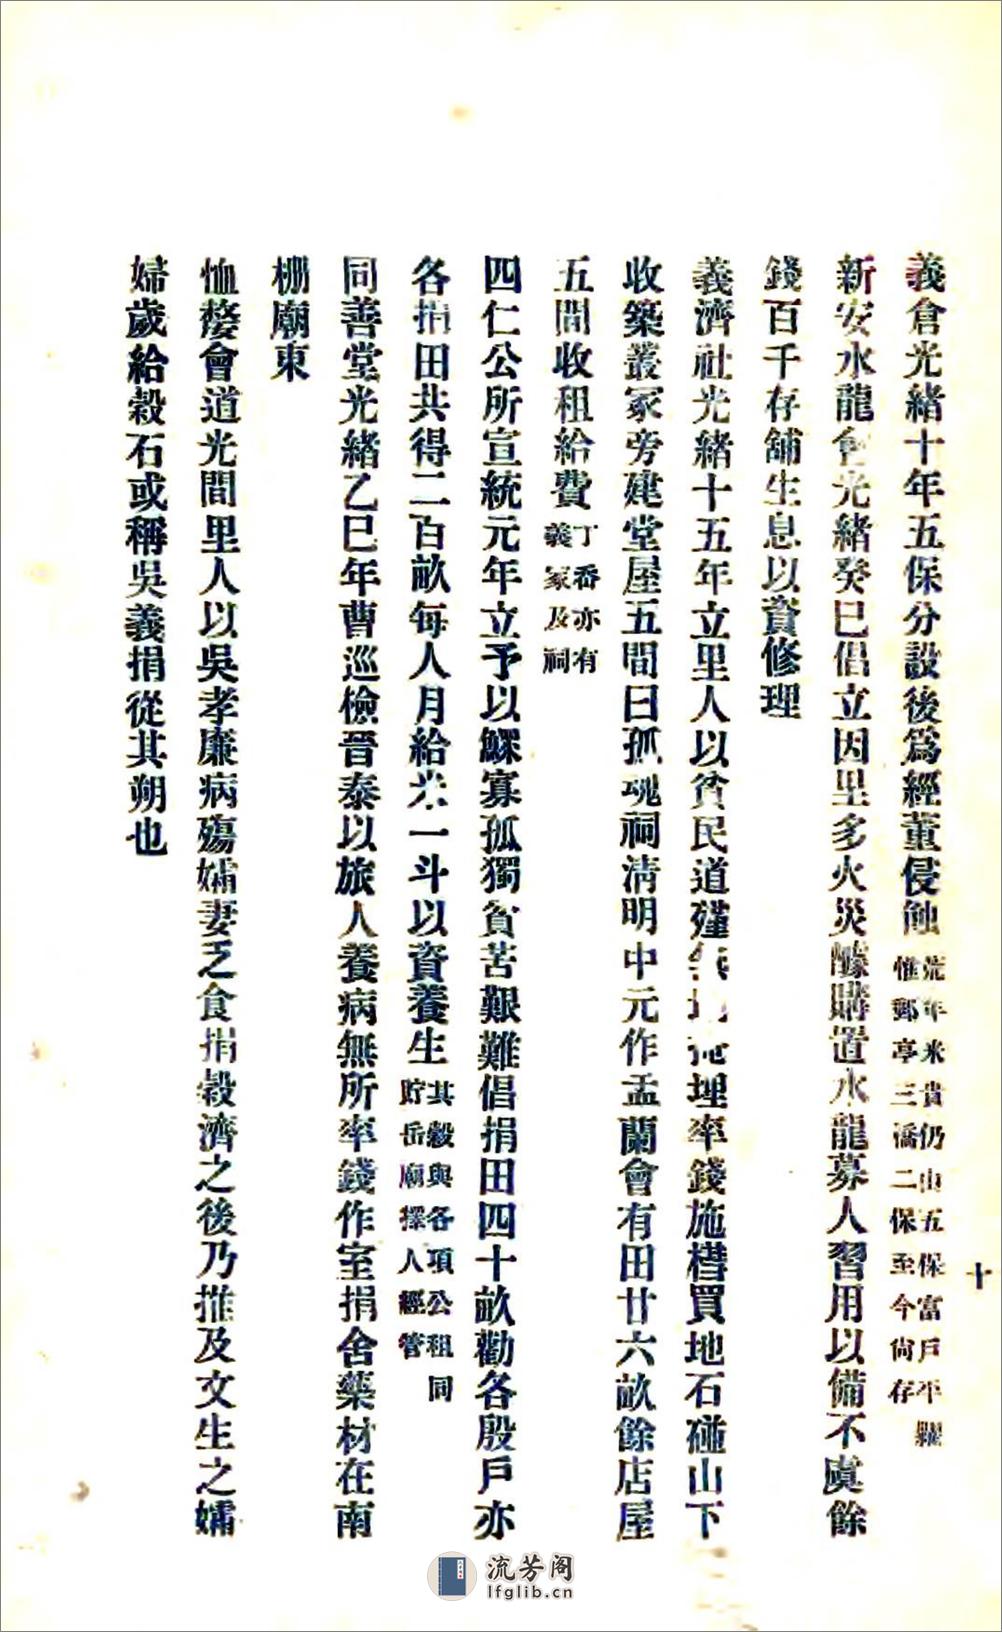 義倉光緒十年五保分設後爲經董侵蝕荒年米貴仍由五保富戶平糶惟鄭亭三橋二保至今尙存
新安水龍會光緒癸巳倡立因里多火災醵購置水龍募人習用以備不虞餘
錢百千存舖生息以資修理
義濟社光緒十五年立里人以貧民道殣無地掩埋率錢施槥買地石碰山下
收築叢冢旁建堂屋五間曰孤魂祠淸明中元作盂蘭會有田廿六畝餘店屋
五間收租給費丁岙亦有義冢及祠
四仁公所宣統元年立予以鰥寡孤獨貧苦艱難倡捐田四十畝勸各殷戶亦
各捐田共得二百畝每人月給米一斗以資養生其穀與各項公租同貯岳廟擇人經管
同善堂光緒乙巳年曹巡檢晉泰以旅人養病無所率錢作室捐舍藥材在南
棚廟東
恤嫠會道光間里人以吳孝廉病殤孀妻乏食捐穀濟之後乃推及文生之孀
婦歲給穀石或稱吳義捐從其朔也
十
流芳阁
lfglib.cn